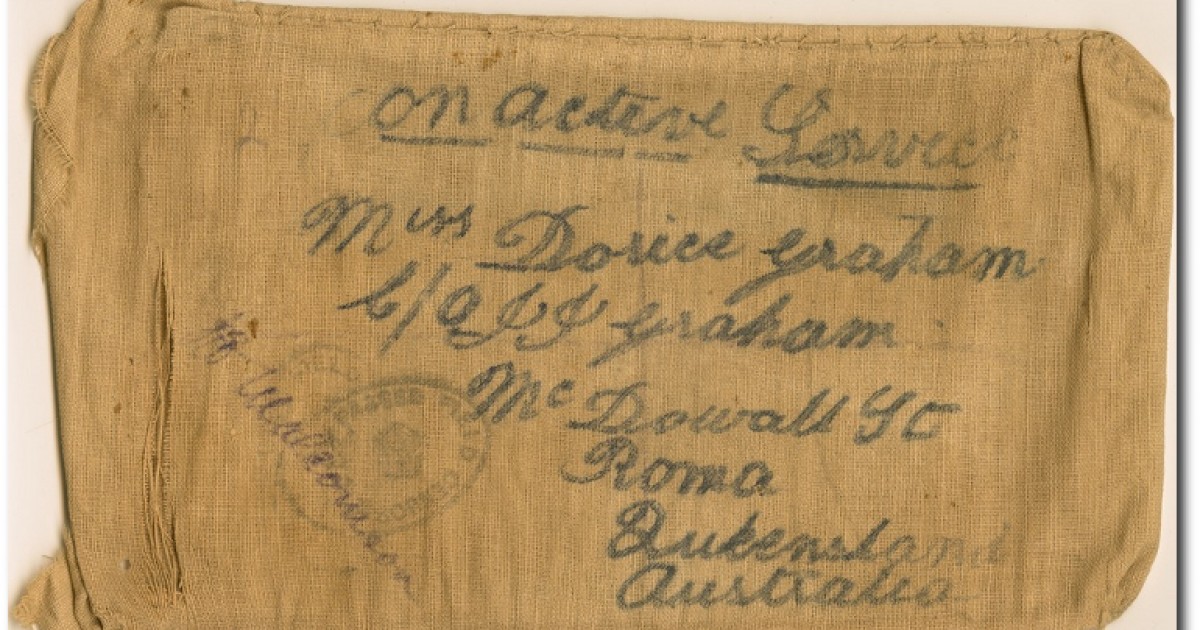 on active Service
Miss Dorice Graham
C/O J J Graham
Mc Dowall St
Roma
Qukensland
Australia
PASSED FIELD CENSOR